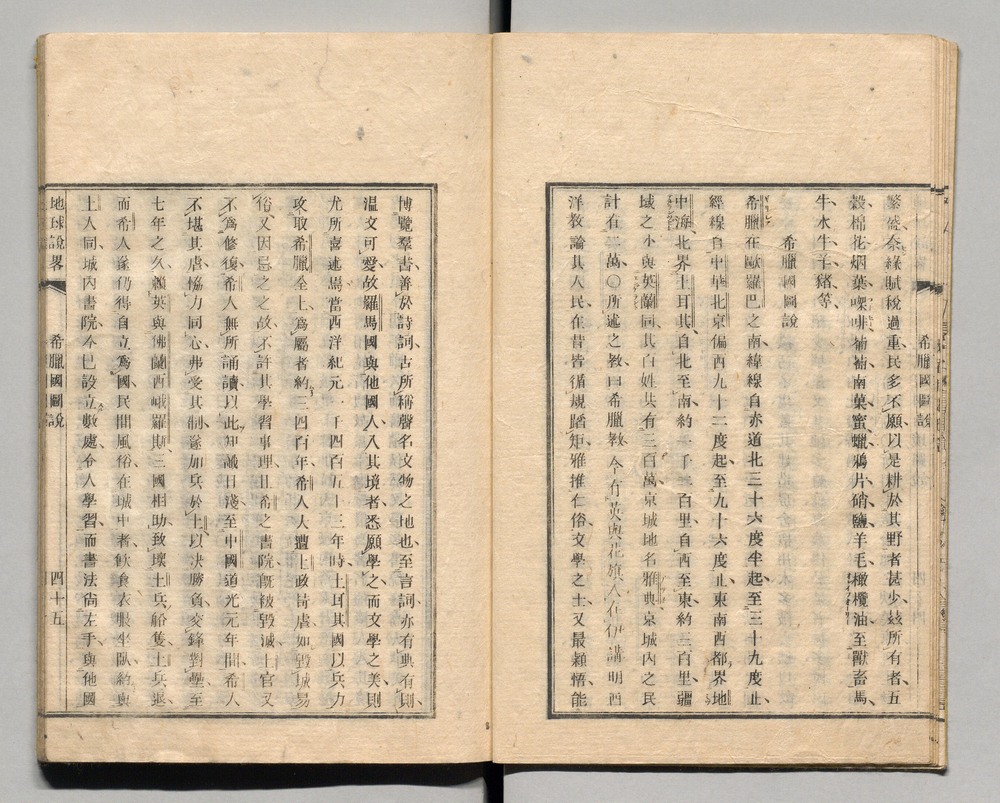 繁盛奈緣賦稅過重民多不願以是耕於其野者甚少茲所有者五
穀棉花烟葉㗎啡補補南菓蜜蠟鴉片硝鹽羊毛橄欖油至獸畜馬
牛水牛羊豬等
希臘國圖說
希臘在歐羅巴之南緯線自赤道北三十六度半起至三十九度止
經線自中華北京偏西九十二度起至九十六度止東南西都界地
中海北界土耳其自北至南約一千三百里自西至東約三百里疆
域之小與英蘭同其百姓共有三百萬京城地名雅典京城內之民
計有二萬〇所述之教曰希臘教今有英與花旗人在伊講明西
洋教論其人民在昔皆循規蹈矩雅推仁俗文學之士又最穎悟能
博覽羣書善於詩詞古所稱聲名文物之地也至言詞亦有典有則
溫文可愛故羅馬國與他國人入其境者悉願學之而文學之美則
尤所喜述焉當西洋紀元一千四百五十三年時土耳其國以兵力
攻取希臘全土爲屬者約三四百年希人大遭土政苛虐如毀城易
俗又因忌之之故不許其學習事理且希之書院旣被毀滅土官又
不爲修復希人無所誦讀以此知識日淺至中國道光元年間希人
不堪其虐恊力同心弗受其制遂加兵於土以决勝負交鋒對壘至
七年之久賴英與佛蘭西峨羅斯三國相助致壞土兵船隻土兵退
而希人遂仍得自立爲國民間風俗在城中者飲食衣服坐臥約與
土人同城內書院今巳設立數處令人學習而書法尙左手與他國
地球說畧
希臘國圖說
四十五